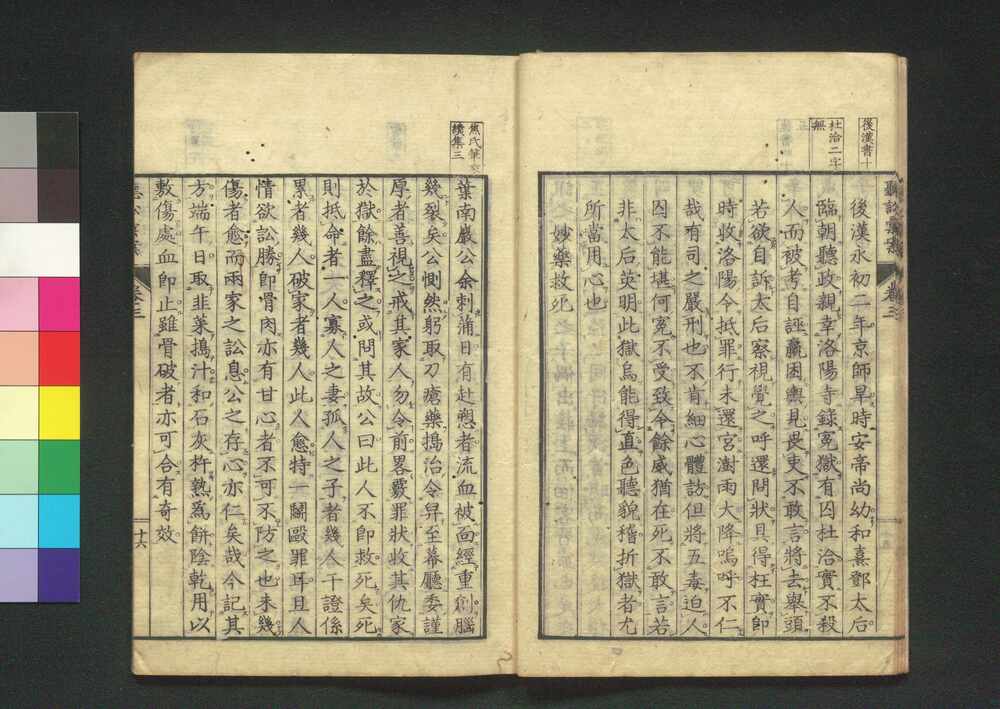 後漢書十
杜洽二字
無
後漢永初二年京師旱時安帝尚幼和熹鄧太后
臨朝聽政親幸洛陽寺錄冤獄有囚杜洽實不殺
人而被考自誣羸困輿見畏吏不敢言將去舉頭
若欲自訴太后察視覺之呼還問狀具得枉實即
時收洛陽令抵罪行未還宮澍雨大降嗚呼不仁
哉有司之嚴刑也不肯細心體訪但將五毒迫人
囚不能堪何冤不受致令餘威猶在死不敢言若
非太后英明此獄烏能得直色聽貌稽折獄者尤
所當用心也
妙藥救死
焦氏筆
續集三
葉南巖公余刺蒲日有赴愬者流血被面經重創腦
幾裂矣公惻然躬取刀瘡藥搗治令舁至幕廳委謹
厚者善視之戒其家人勿令前畧覈罪狀收其仇家
於獄餘盡釋之或問其故公曰此人不即救死矣死
則抵命者一人寡人之妻孤人之子者幾人干證係
累者幾人破家者幾人此人愈特一鬭毆罪耳且人
情欲訟勝即骨肉亦有甘心者不可不防之也未幾
傷者愈而兩家之訟息公之存心亦仁矣哉今記其
方端午日取韭菜搗汁和石灰杵熟為餅陰乾用以
敷傷處血即止雖骨破者亦可合有奇效
卷三
十六